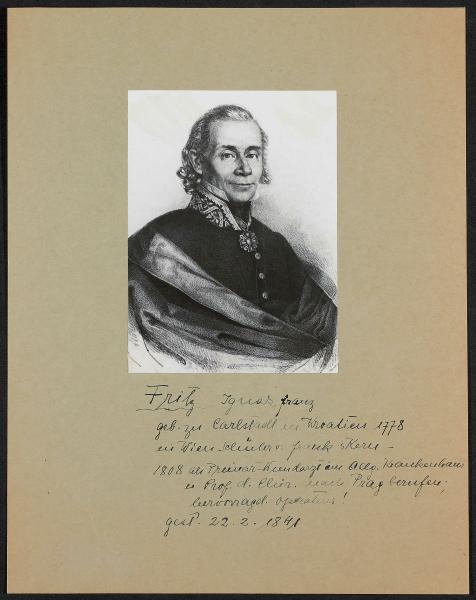 Fritz Ignaz, franz
geb. zu Carlstadt in Kroatien 1778
in Wien Schüler v. frank & Kern -
1808 als Primar-Wundarzt am Allg. Krankenhaus
u. Prof. d. Chir. nach Prag berufen,
hervorragd. Operateur!
gest. 22. 2. 1841